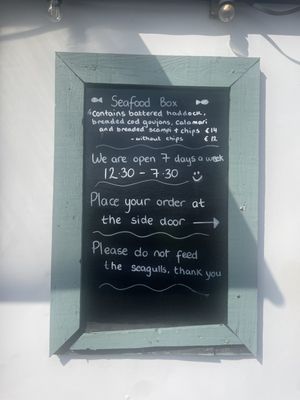 Seafood Box
Contains battered haddock,
breaded cod goujons, calamari
and breaded scampi + chips £14
- without chips £12
We are open 7 days a week
12.30 - 7.30
Place your order at
the side door
Please do not feed
the seagulls, thank you